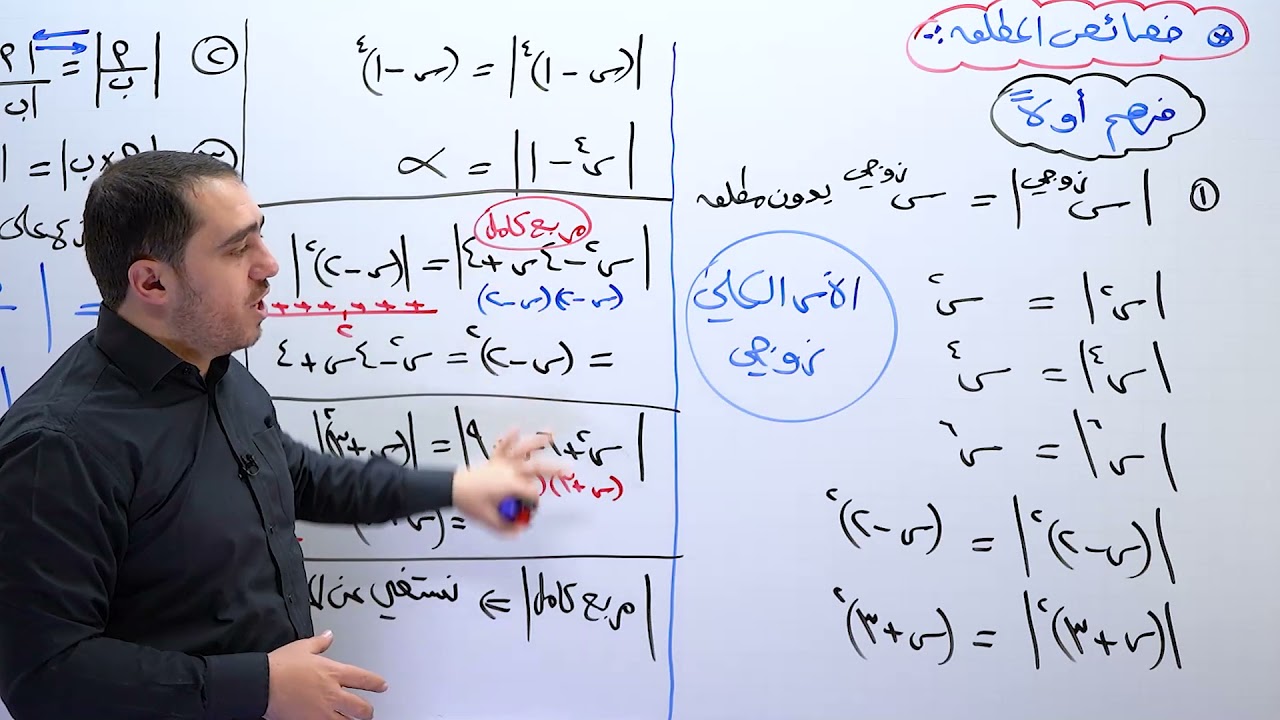 خصائص المطلق :-
نفهم أولاً
① |س^زوجي| = س^زوجي بدون مطلق
|س^٢| = س^٢
|س^٤| = س^٤
|س^٦| = س^٦
الأس الكلي
زوجي
|(س-٢)^٢| = (س-٢)^٢
|(س+٣)^٢| = (س+٣)^٢
|(س-١)^٤| = (س-١)^٤
|س^٤-١| = ∝
مربع كامل
|س^٢-٤س+٤| = |(س-٢)^٢|
(س-٢)(س-٢)
+ + + + + + +
٢
= (س-٢)^٢ = س^٢-٤س+٤
|س^٢+٦ ٩| = |(س+٣)^٢|
(س+٣)(
= (س
|مربع كامل| ⇐ نستغني عن
② |أ/ب| = |أ
|أ×ب| = |